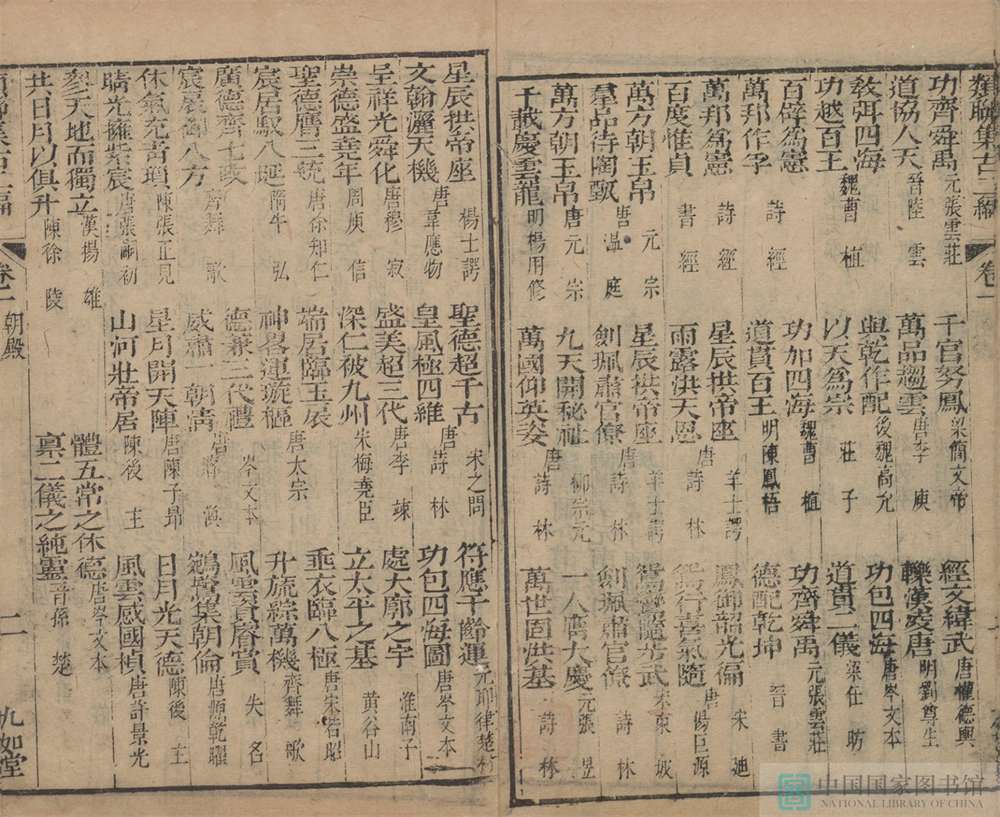 類聯集古二編 卷一
功齊舜禹 元張雲莊 千官努鳳 梁簡文帝 經文緯武 唐權德輿
道協人天 晉陸雲 萬品趨雲 唐李庾 轢漢凌唐 明劉尊生
敎弭四海 與乾作配 後魏高允 功包四海 唐岑文本
功越百王 魏曹植 以天爲宗 莊子 道貫二儀 梁任昉
百辟爲憲 功加四海 魏曹植 功齊舜禹 元張雲莊
萬邦作孚 詩經 道貫百王 明陳鳳梧 德配乾坤 晉書
萬邦爲憲 詩經 星辰拱帝座 羊士諤 鳳御韶光徧 宋廸
百度惟貞 書經 雨露洪天恩 唐詩林 鴛行喜氣隨 唐楊巨源
萬方朝玉帛 唐元宗 星辰拱帝座 羊士諤 鴛鷺隨步武 宋東坡
羣品待陶甄 唐溫庭 劍珮肅官僚 唐詩林 劍珮肅官僚 詩林
萬方朝玉帛 唐元宗 九天開秘祉 柳宗元 一人膺大慶 元張昱
千載慶雲龍 明楊用修 萬國仰英姿 唐詩林 萬世固洪基 詩林
星辰拱帝座 楊士諤 聖德超千古 宋之問 符應千齡運 元耶律楚材
文翰灑天機 唐韋應物 皇風極四維 唐詩林 功包四海圖 唐岑文本
呈祥光舜化 唐穆寂 盛美超三代 唐李竦 處大廓之宇 淮南子
崇德盛堯年 周庾信 深仁被九州 朱梅堯臣 立太平之基 黃谷山
聖德膺三統 唐徐知仁 端居臨玉扆 唐太宗 垂衣臨八極 唐宋若昭
宸居馭八延 隋牛弘 神畧運璇樞 岑文本 升旒綜萬機 齊舞歌
廣德齊七政 齊舞歌 德兼三代禮 風雲資睿賞 失名
宸嚴御八方 威肅一朝淸 唐 鵷鷺集朝倫 唐源乾曜
休氣充靑瑣 陳張正見 星月開天陣 唐陳子昂 日月光天德 陳後主
晴光擁紫宸 唐張嗣初 山河壯帝居 陳後主 風雲感國禎 唐許景光
參天地而獨立 漢揚雄 體五常之休德 唐岑文本
共日月以俱升 陳徐陵 稟二儀之純靈 晉孫楚
類聯集古二編 卷一 朝殿 二 九如堂
中国国家图书馆
NATIONAL LIBRARY OF CHINA